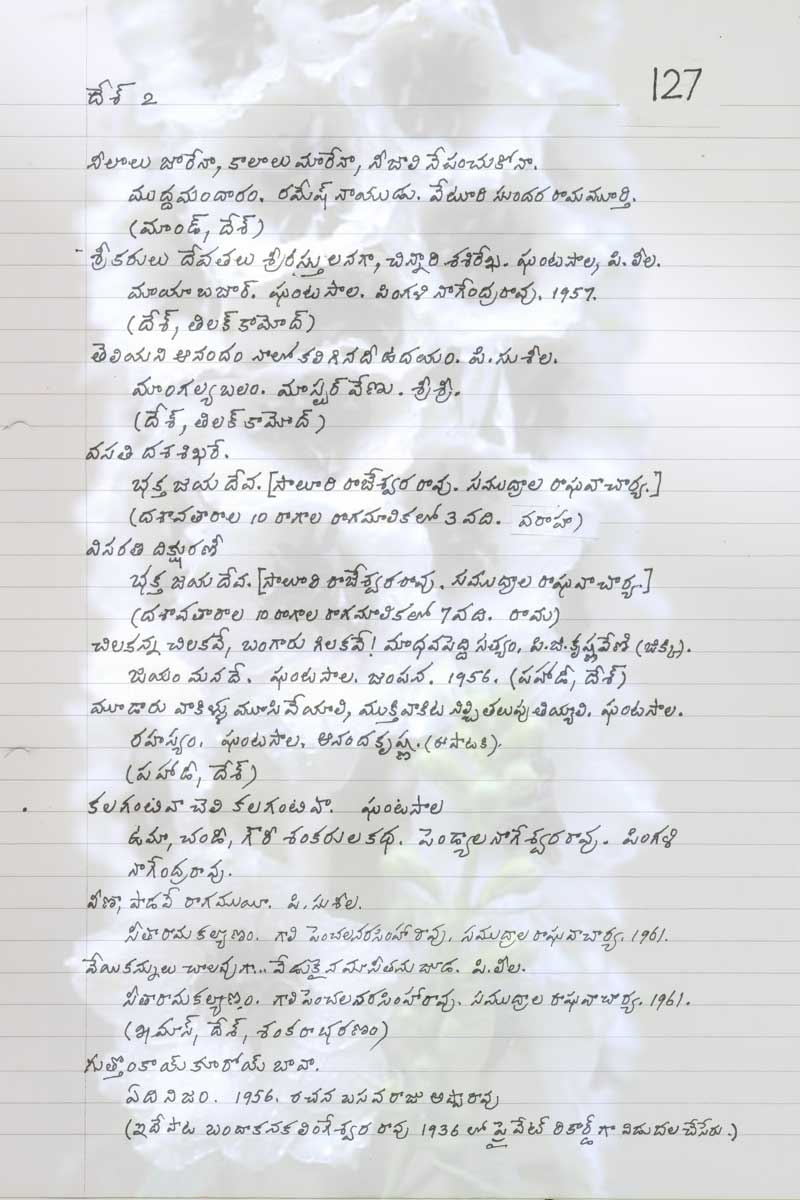 దేశ్ 2
127
నీలాలు జారేనా, కాలాలు మారేనా, నీజాలి నేపంచుకోనా.
ముద్దమందారం. రమేష్ నాయుడు. వేటూరి సుందర రామమూర్తి.
(మాండ్, దేశ్)
శ్రీకరులు దేవతలు శ్రీరస్తులనగా, చిన్నారి శశిరేఖ. ఘంటసాల, పి.లీల.
మాయాబజార్. ఘంటసాల. పింగళి నాగేంద్రరావు. 1957.
(దేశ్, తిలక్ కామోద్)
తెలియని ఆనందం నాలో కలిగినదీ ఉదయం. పి.సుశీల.
మాంగల్యబలం. మాస్టర్ వేణు. శ్రీశ్రీ.
(దేశ్, తిలక్ కామోద్)
వసతి దశశిఖరే.
భక్త జయదేవ. [సాలూరి రాజేశ్వర రావు. సముద్రాల రాఘవాచార్య.]
(దశావతారాల 10 రాగాల రాగమాలికలో 3 వది. వరాహ)
వితరతి దిక్షురణే
భక్త జయదేవ. [సాలూరి రాజేశ్వరరావు. సముద్రాల రాఘవాచార్య.]
(దశావతారాల 10 రాగాల రాగమాలికలో 7 వది. రామ)
చిలకన్న చిలకవే, బంగారు గిలకవే! మాధవపెద్ది సత్యం, పి.జి.కృష్ణవేణి (జిక్కి).
జయం మనదే. ఘంటసాల. జంపన. 1956. (పహాడీ, దేశ్)
మూడారు వాకిళ్ళు మూసివేయాలి, ముక్తివాకిట నిల్చి తలుపు తియ్యాలి. ఘంటసాల.
రహస్యం. ఘంటసాల. ఆనందకృష్ణ. (ఈ పాటకి).
(పహాడీ, దేశ్)
కలగంటివా చెలి కలగంటివా. ఘంటసాల
ఉమా, చండీ, గౌరీ శంకరుల కథ. పెండ్యాల నాగేశ్వరరావు. పింగళి
నాగేంద్రరావు.
వీణా, పాడవే రాగమయీ. పి.సుశీల.
సీతారామకల్యాణం. గాలి పెంచలనరసింహారావు. సముద్రాల రాఘవాచార్య. 1961.
వేయికన్నులు చాలవుగా... వేడుకైన మా సీతను చూడ. పి.లీల.
సీతారామకల్యాణం. గాలి పెంచలనరసింహారావు. సముద్రాల రాఘవాచార్య. 1961.
(ఖమాస్, దేశ్, శంకరాభరణం)
గుత్తొంకాయ్ కూరోయ్ బావా.
ఏది నిజం. 1956. రచన బసవరాజు అప్పారావు
(ఇదేపాట బందా కనకలింగేశ్వర రావు 1936 లో ప్రైవేట్ రికార్డ్ గా విడుదల చేసేరు.)